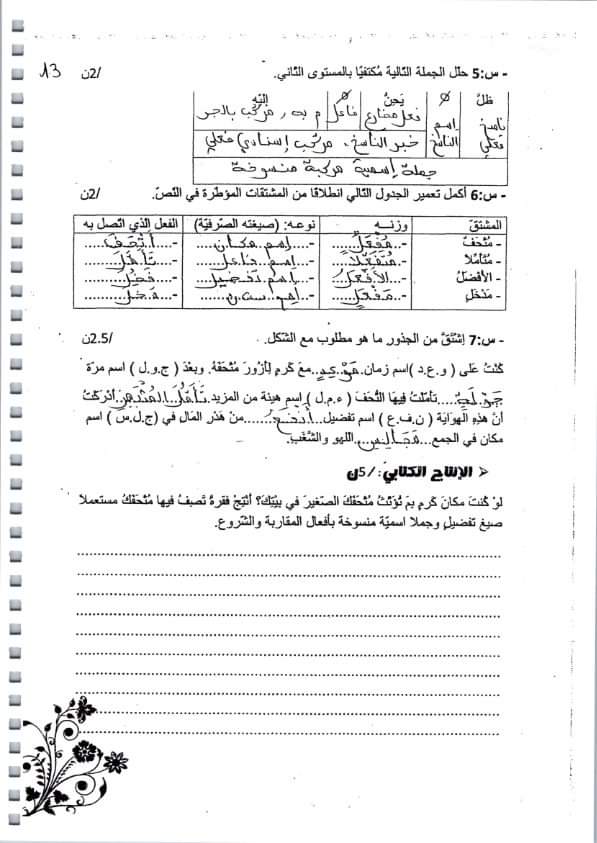 13
- س:5 حلّل الجملة التّالية مُكتفيًا بالمستوى الثّاني. /2ن
ظلّ Ø يَحِنُّ Ø إليْهِ
ناسخ فعلي اسم الناسخ فعل مضارع فاعل م به، مركب بالجر
خبر الناسخ، مركب إسنادي فعلي
جملة إسمية مركبة منسوخة
- س:6 أكمل تعمير الجدول التّالي انطلاقا من المشتقات المؤطّرة في النّصّ. /2ن
المشتقّ وزنـــه نوعـه: (صيغته الصّرفيّة) الفعل الذي اتّصل به
- مُتْحَفُ -..مُفْعَلٌ..... -....إسم مكان... -...أَتْحَفَ....
- مُتَأمِّلا -..مُتَفَعِّلًا..... -...إسم فاعل... -...تَأَمَّلَ....
- الأفضلُ -...الأَفْعَلُ..... -...إسم تفضيل... -...فَضُلَ....
- مَدْخَلِ -..مَفْعَلٌ..... -...إسم -...دخل....
- س:7 إشْتَقَّ من الجذور ما هو مطلوب مع الشّكل. /2.5ن
كُنْتُ عَلى ( و.ع.د )اسم زمان..مَوْعِدٍ..مَعَ كَرَم لِأزُورَ مُتْحَفَهُ. وبعْدَ ( ج.و.ل ) اسم مرّة
جَوْلَةٍ.....تأمّلتُ فِيهَا التُّحَفَ ( ء.م.ل ) اسم هيئة من المزيد..تَأَمُّلَ..المُنْدَهِشِ..أدْرَكْتُ
أنّ هذِهِ الهِوَايَةَ ( ن.ف.ع ) اسم تفضيل...أَنْفَعُ......منْ هَدْرِ المَالِ في (ج.ل.س ) اسم
مكان في الجمع...مَجَالِسِ..اللّهو والشَّغَبِ.
الإنتاج الكتابي: /5ن
لوْ كُنتَ مكانَ كَرمٍ بمَ تُؤثّثُ مُتْحَفَكَ الصّغيرَ في بيْتِكَ؟ أنتِجْ فقرةً تَصِفُ فيها مُتْحَفَكَ مستعملا
صيغَ تفضيلٍ وجملا اسميّة منسوخة بأفعال المقاربة والشّروع.